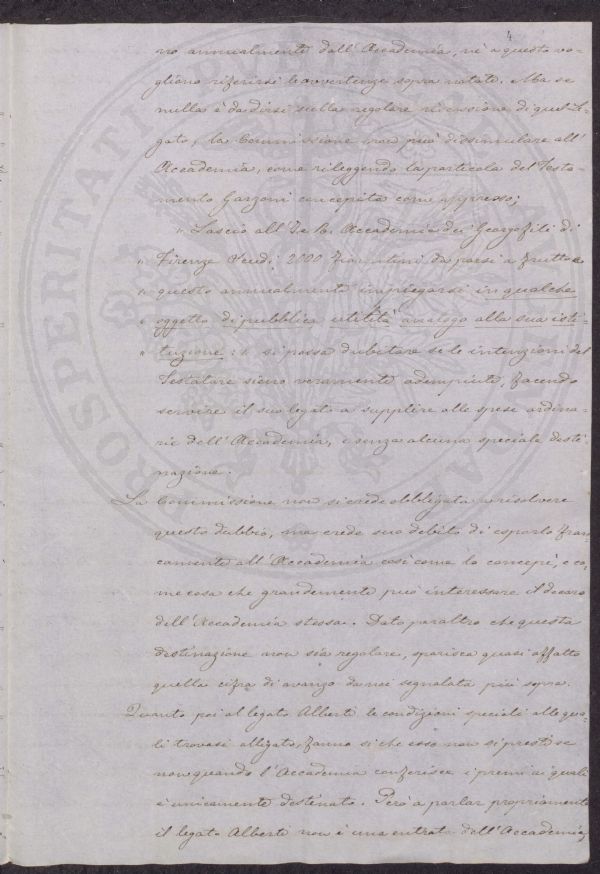 4
no annualmente dall'Accademia, nè a questo vo-
gliono riferirsi le avvertenze sopra notate. Ma se
nulla è da dirsi sulla regolare riscossione di quel le-
gato, la Commissione non può dissimulare all'
Accademia, come rileggendo la particola del Testa-
mento Garzoni concepita come appresso;
" Lascio all'I. e R. Accademia dei Georgofili di
" Firenze Scudi 2000 fiorentini da porsi a frutto e
" questo annualmente impiegarsi in qualche
" oggetto di pubblica utilità analogo alla sua isti-
" tuzione : si possa dubitare se le intenzioni del
Testatore sieno veramente adempiute, facendo
servire il suo legato a supplire alle spese ordina-
rie dell'Accademia, e senza alcuna speciale desti-
nazione.
La Commissione non si crede obbligata a risolvere
questo dubbio, ma crede suo debito di esporlo fran
camente all'Accademia così come lo concepì, e co-
me cosa che grandemente può interessare il decoro
dell'Accademia stessa. Dato peraltro che questa
destinazione non sia regolare, sparisce quasi affatto
quella cifra di avanzo da noi segnalata più sopra.
Quanto poi al legato Alberti le condizioni speciali alle qua-
li trovasi allegato, fanno sì che esso non si presti se
non quando l'Accademia conferisce i premi ai quali
è unicamente destinato. Però a parlar propriamente
il legato Alberti non è una entrata dell'Accademia,
PROSPERITATI AUGENDAE